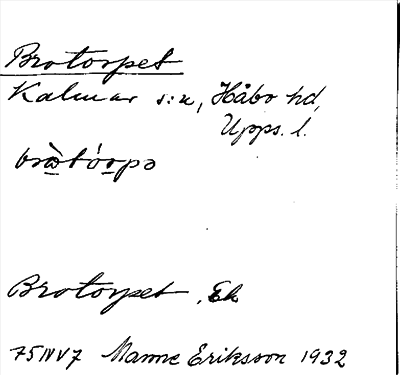 Brotorpet
Kalmar s:n, Håbo hd,
Upps. l.
Brotorpet, Ek
75NV7 Manne Eriksson 1932